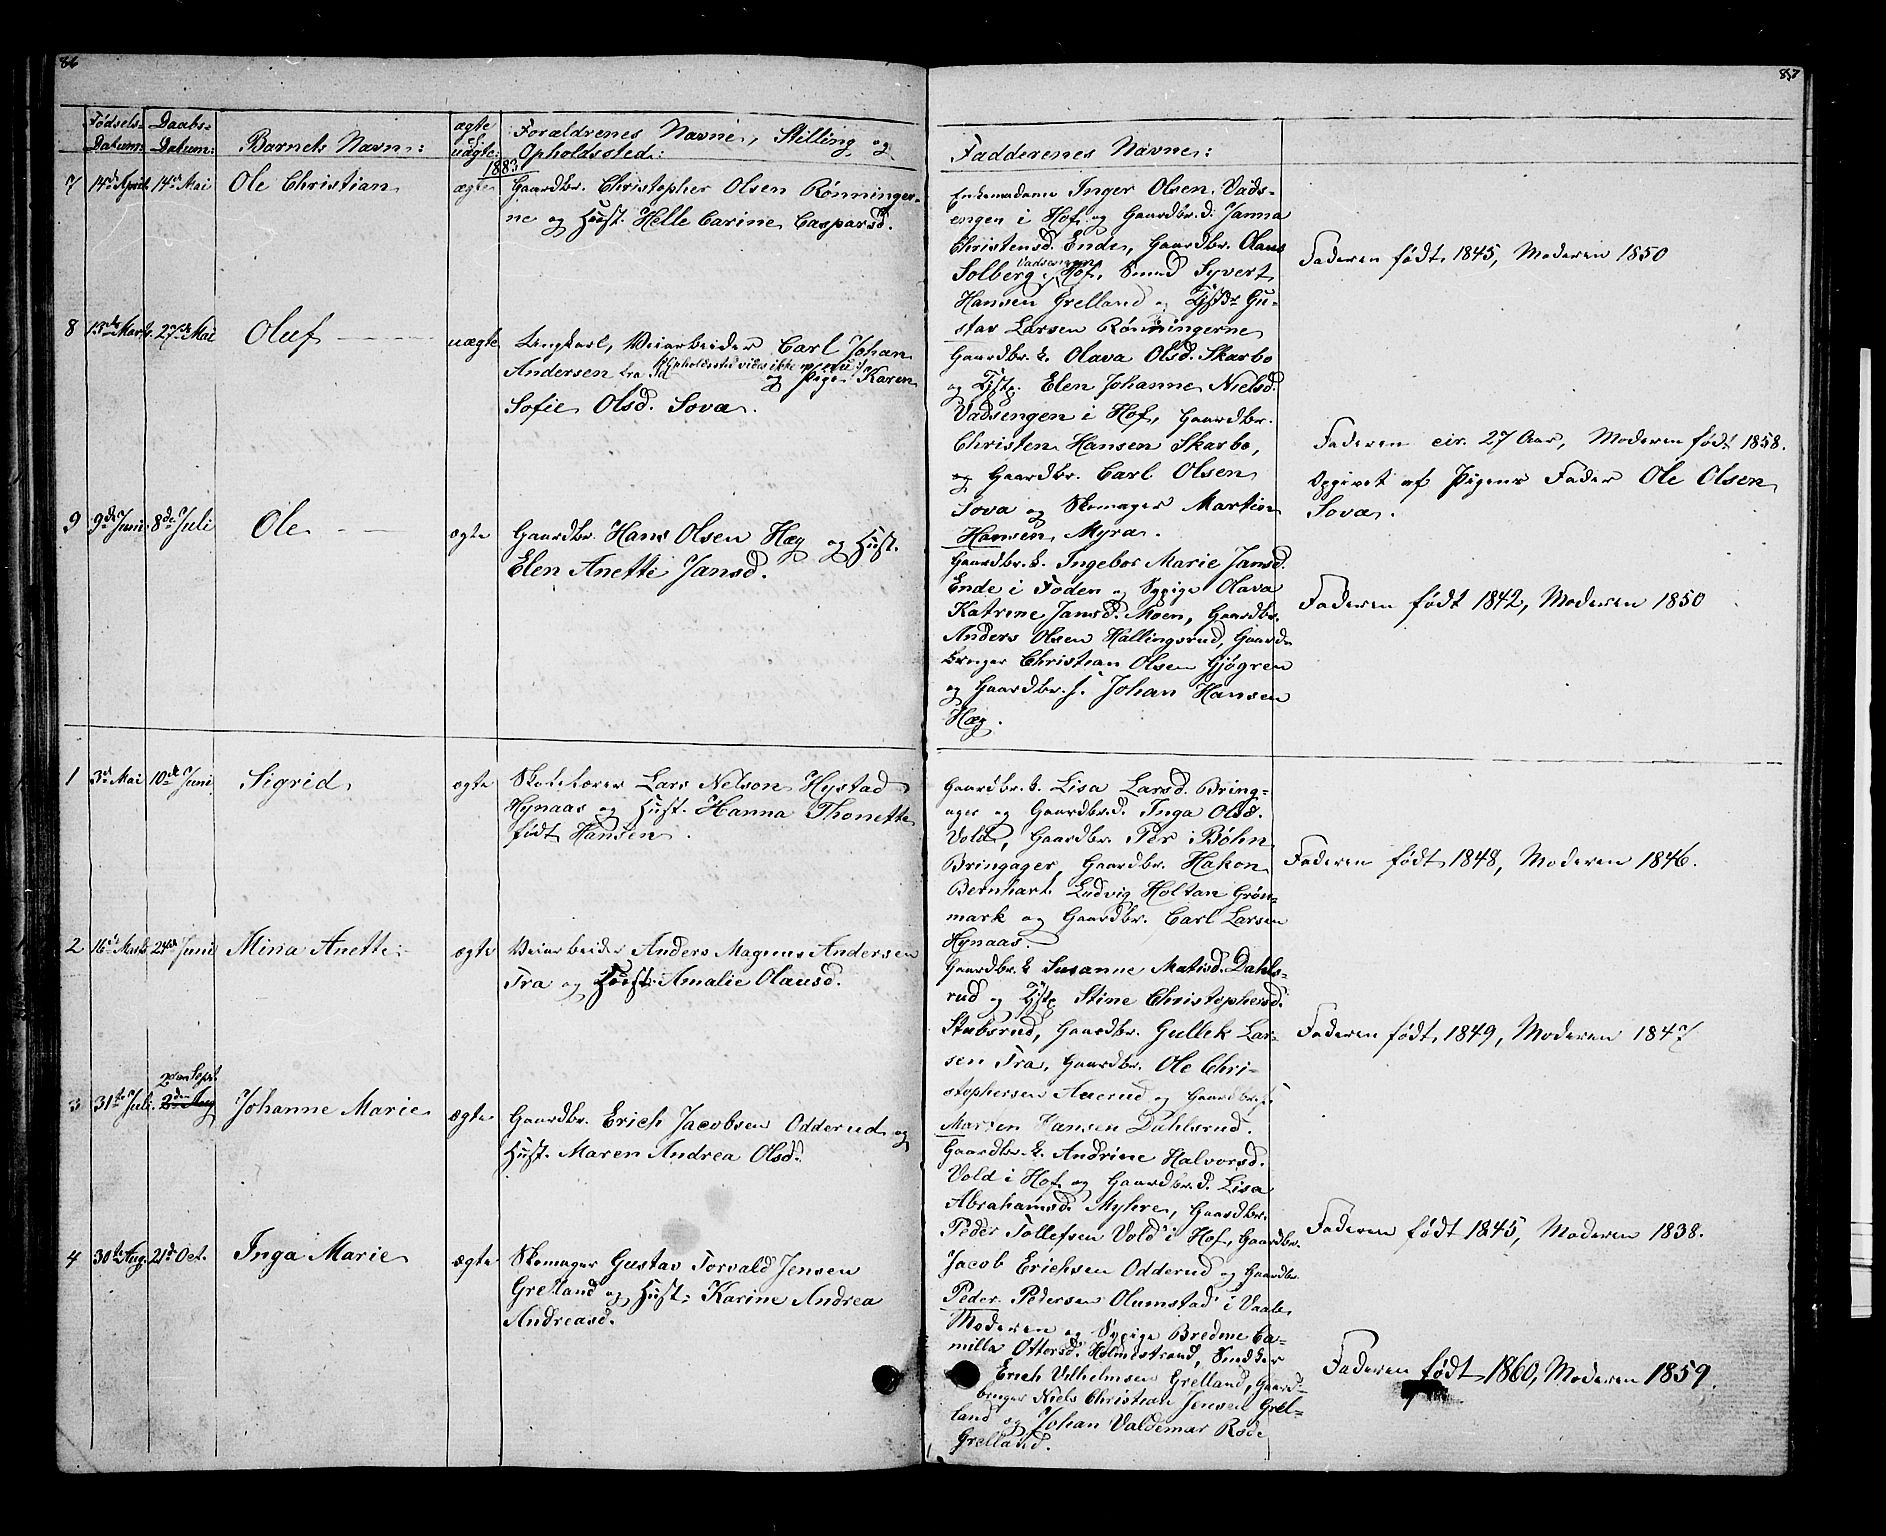 86
Fødsels- Daabs- Barnets Navn: ægte Forældrenes Navne, Stilling og
Datum: Datum: uægte: Opholdssted:
1883.
7 14de April 14de Mai Ole Christian ægte Gaardbr. Christopher Olsen Rønninger-
ne og Hust. Helle Carine Caspersd.
8 13de Marts 27de Mai Oluf uægte Ungkarl, Veiarbeider Carl Johan
Andersen fra (Opholdssted vides ikke og Pige Karen
Sofie Olsd. Sova.
9 9de Juni 8de Juli Ole ægte Gaardbr. Hans Olsen Hæg og Hust.
Elen Anette Jansd.
1 3de Mai 10de Juni Sigrid ægte Skolelærer Lars Nelson Hystad
Hynaas og Hust. Hanna Thonette
født Hansen.
2 16de Marts 24de Juni Mina Anette ægte Veiarbeider Anders Magnus Andersen
Fra og Hust. Amalie Olausd.
2den Sept.
3 31te Juli 2den Aug Johanne Marie ægte Gaardbr. Erich Jacobsen Odderud og
Hust. Maren Andrea Olsd.
4 30te Aug. 21de Oct. Inga Marie ægte Skomager Gustav Torvald Jensen
Grelland og Hust: Karine Andrea
Andreasd.
87
Fadderenes Navne:
Enkemadame Inger Olsen Vads-
engen i Hof og Gaardbr.d. Janna
Christensd. Ende, Gaardbr. Olaus
Solberg Vadsengen i Hof, Smed Syvert
Hansen Grelland og Gu-
stav Larsen Rønningerne
Faderen født 1845, Moderen 1850
Gaardbr. k. Olava Olsd. Skarbo
og Elen Johanne Nielsd.
Vadsengen i Hof, Gaardbr.
Christen Hansen Skarbo,
og Gaardbr. Carl Olsen
Sova og Skomager Martin
Hansen Myra.
Faderen cir. 27 Aar, Moderen født 1858.
Opgivet af Pigens Fader Ole Olsen
Sova.
Gaardbr. k. Ingebor Marie Jansd.
Ende i Foden og Sypige Olava
Katrine Jansd. Moen, Gaardbr.
Anders Olsen Hallingsrud, Gaard-
bruger Christian Olsen Gjøgren
og Gaardbr. s. Johan Hansen
Hæg.
Faderen født 1842, Moderen 1850
Gaardbr. k. Lisa Larsd. Bring-
ager og Gaardbr.d. Inga Olsd.
Vold, Gaardbr. Per Bøhn
Bringager, Gaardbr. Hakon
Bernhart Ludvig Holtan Grøn-
mark og Gaardbr. Carl Larsen
Hynaas.
Faderen født 1848, Moderen 1846.
Gaardbr. k. Susanne Matisd. Dahls-
rud og Stine Christophersd.
Stubsrud, Gaardbr. Gullek Lar-
sen Fra, Gaardbr. Ole Chri-
stophersen Aaerud og Gaardbr. s.
Marten Hansen Dahlsrud.
Faderen født 1849, Moderen 1847
Gaardbr. k. Andrine Halvorsd.
Vold i Hof og Gaardbr.d. Lisa
Abrahamsd. Myhre, Gaardbr.
Peder Tollefsen Vold i Hof, Gaardbr.
Jacob Erichsen Odderud og Gaardbr.
Peder Pedersen Olumstad i Vaale
Faderen født 1845, Moderen 1838.
Moderen og Sypige Bredine Ca-
milla Ottersd. Holmestrand, Snedker
Erich Vilhelmsen Grelland, Gaard-
bruger Niels Christian Jensen Grel-
land og Johan Valdemar Rode
Grelland.
Faderen født 1860, Moderen 1859.